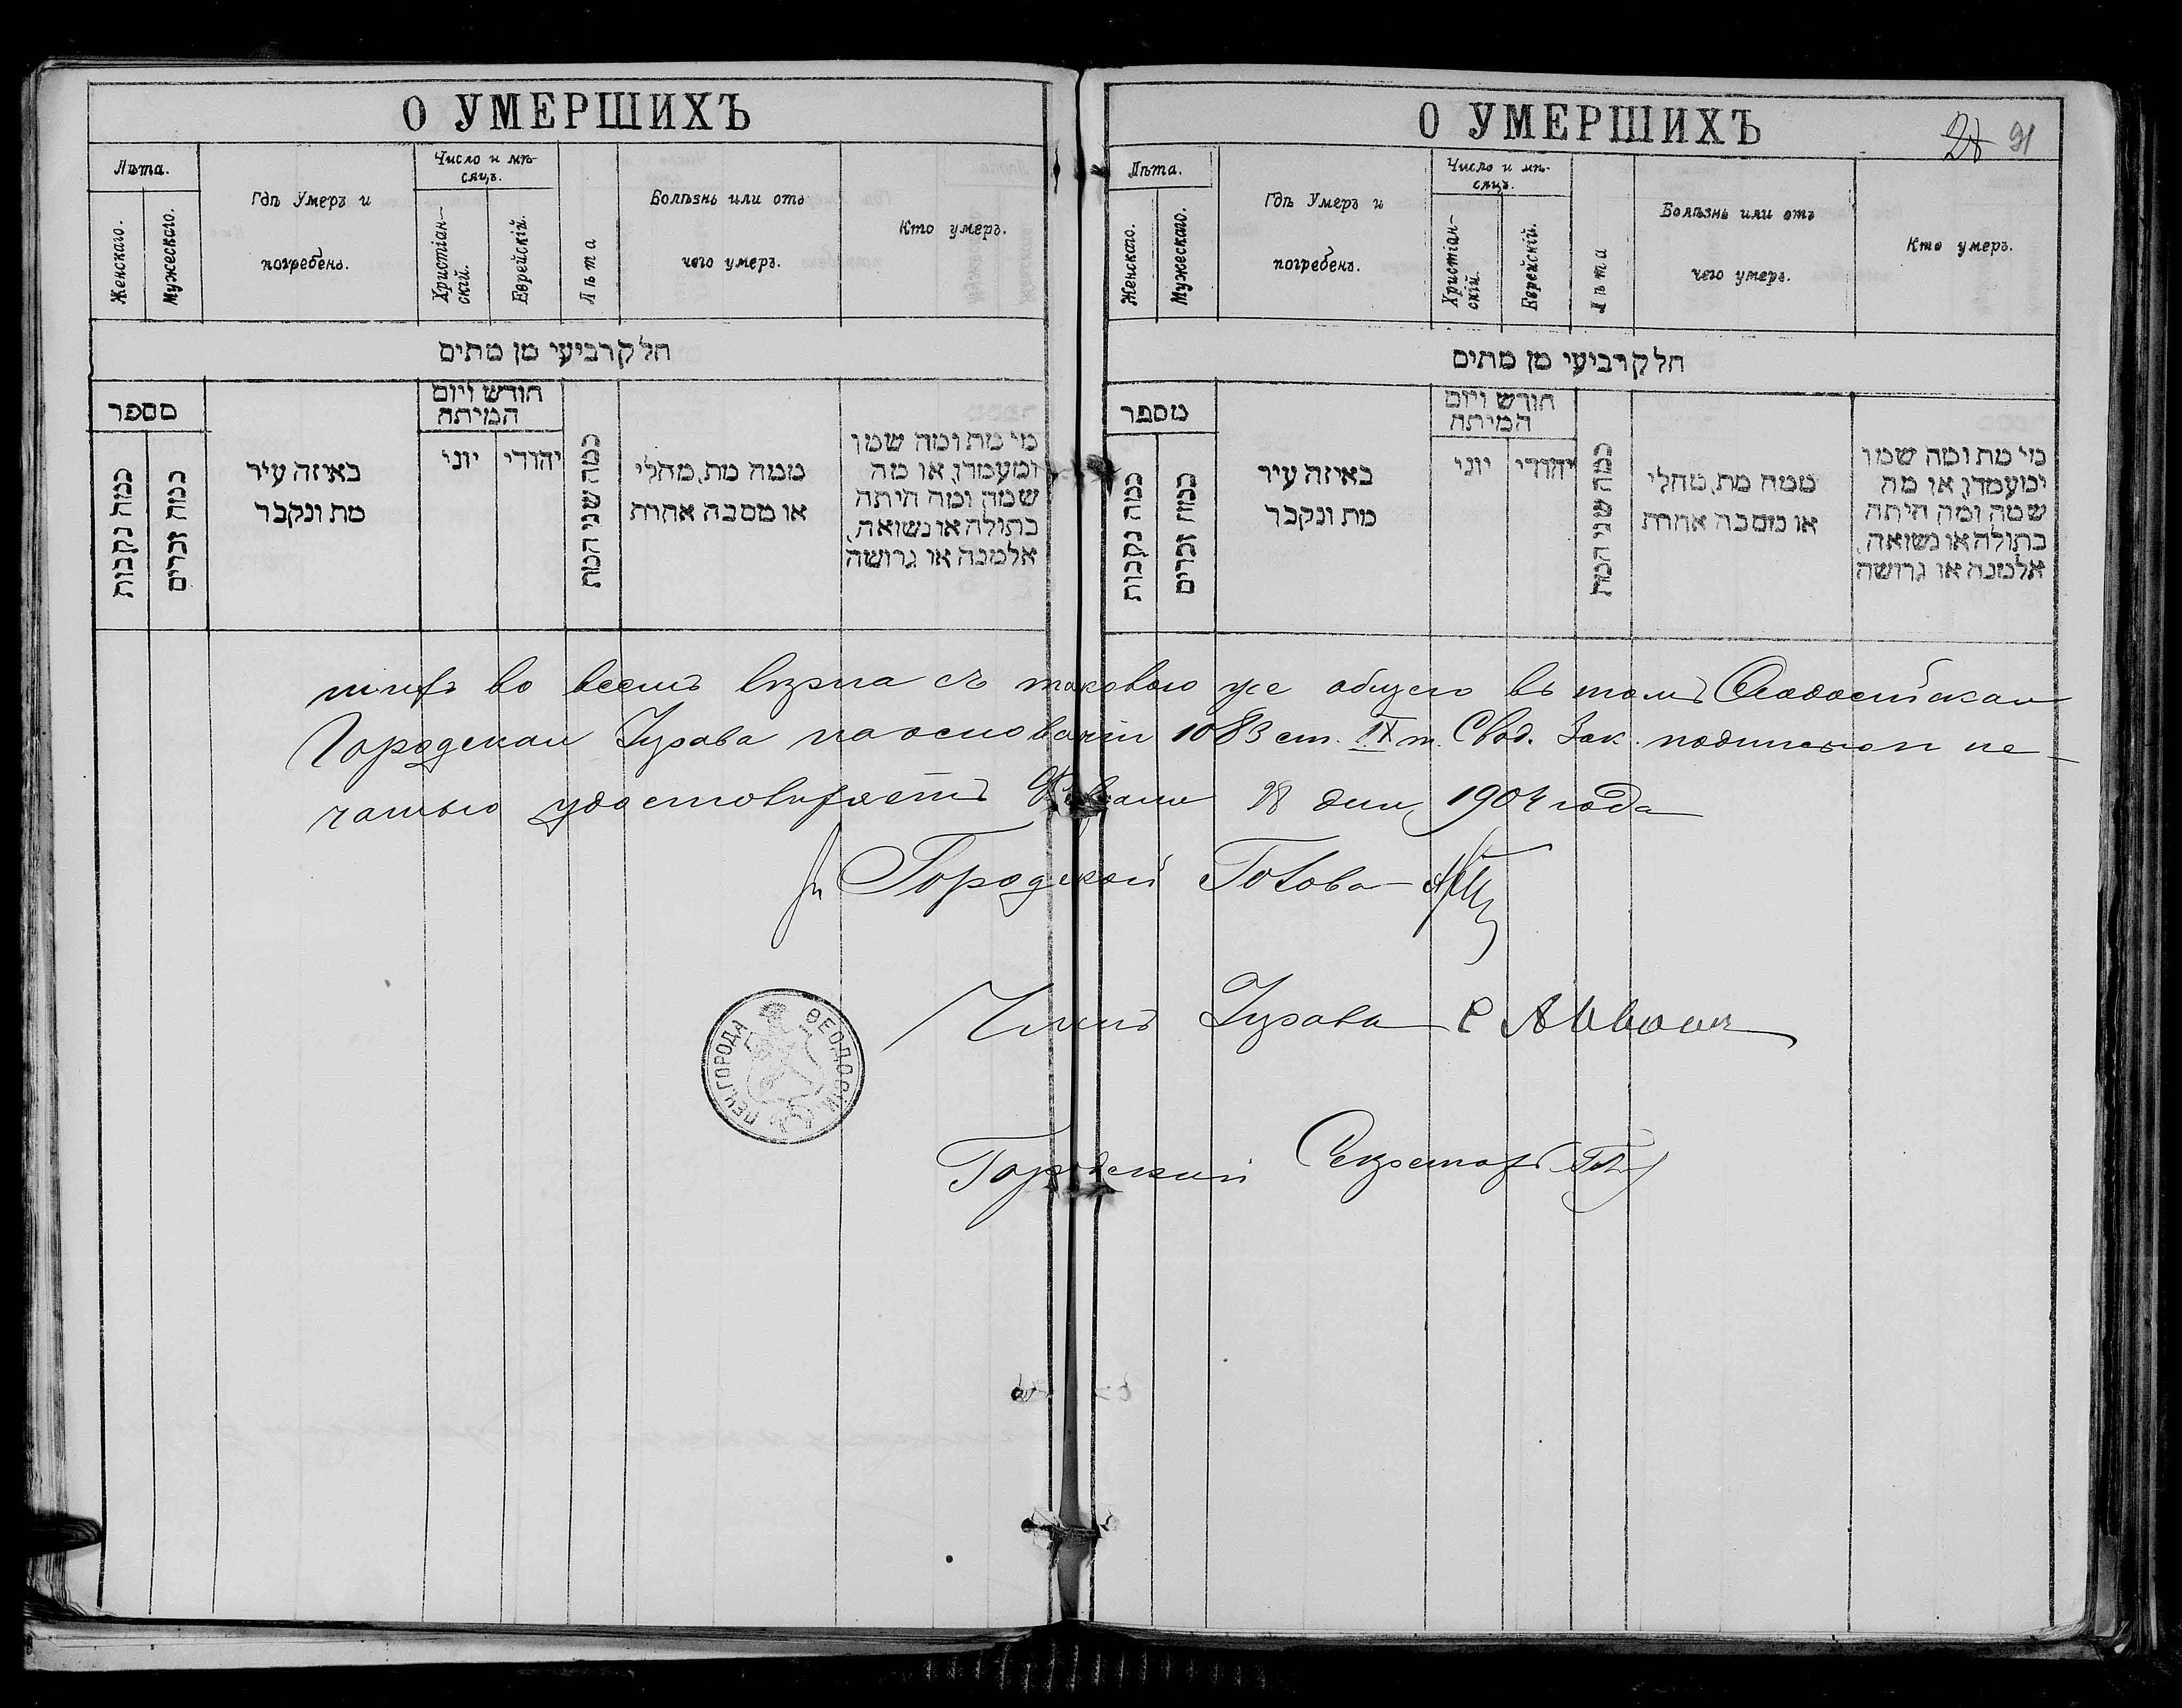 О УМЕРШИХЪ
Лѣта.
Женскаго.
Мужескаго.
Гдѣ Умеръ и
погребенъ.
Число и мѣ-
сяцъ.
Христіан-
скій.
Еврейскій.
Лѣта
Болѣзнь или отъ
чего умеръ.
Кто умеръ.
חלק רביעי מן מתים
מספר
כמה נקבות
כמה זכרים
באיזה עיר
מת ונקבר
חודש ויום
המיתה
יוני
יהודי
כמה שני המת
ממה מת, מחלי
או מסבה אחרת
מי מת ומה שמו
ומעמדו, או מה
שמה ומה היתה
בתולה או נשואה,
אלמנה או גרושה
О УМЕРШИХЪ
28 91
Лѣта.
Женскаго.
Мужескаго.
Гдѣ Умеръ и
погребенъ.
Число и мѣ-
сяцъ.
Христіан-
скій.
Еврейскій.
Лѣта
Болѣзнь или отъ
чего умеръ.
Кто умеръ.
חלק רביעי מן מתים
מספר
כמה נקבות
כמה זכרים
באיזה עיר
מת ונקבר
חודש ויום
המיתה
יוני
יהודי
כמה שני המת
ממה מת, מחלי
או מסבה אחרת
מי מת ומה שמו
ומעמדו, או מה
שמה ומה היתה
בתולה או נשואה,
אלמנה או גרושה
во всемъ вѣрна съ таковою же въ томъ Ѳеодосійская
Городская Управа на основаніи 1083 ст. IX т. Свод. Зак. подписью и пе-
чатью удостовѣряетъ Февраля 28 дня 1904 года
Городской Голова
Членъ Управы
Городской Секретарь
ПЕЧ. ГОРОДА ѲЕОДОСІИ